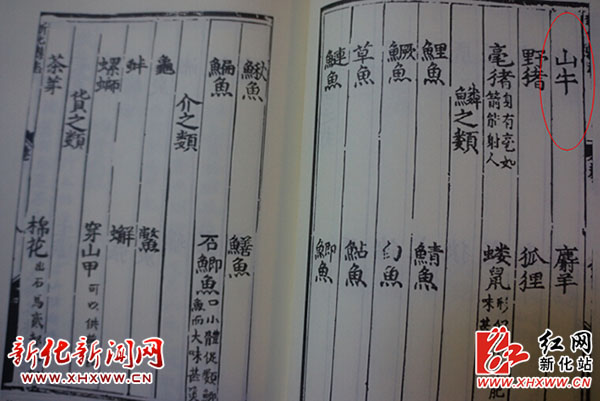 山牛 麝羊
野猪 狐狸
毫猪 身有毫如箭能射人 鼠 味
鱗之類
鯉魚 鯖魚
鱖魚 幻魚
草魚 鮎魚
鰱魚 鯽魚
鰍魚 鱔魚
鯿魚 石鯽魚 口小體促類 魚而大味甚
介之類
龜 鱉
蚌 蠏
螺螄 穿山甲 可以供
貨之類
茶芽 棉花 出石馬
新化新闻网
WWW.XHXWW.CN
红网
新化站
WWW.XHXWW.CN